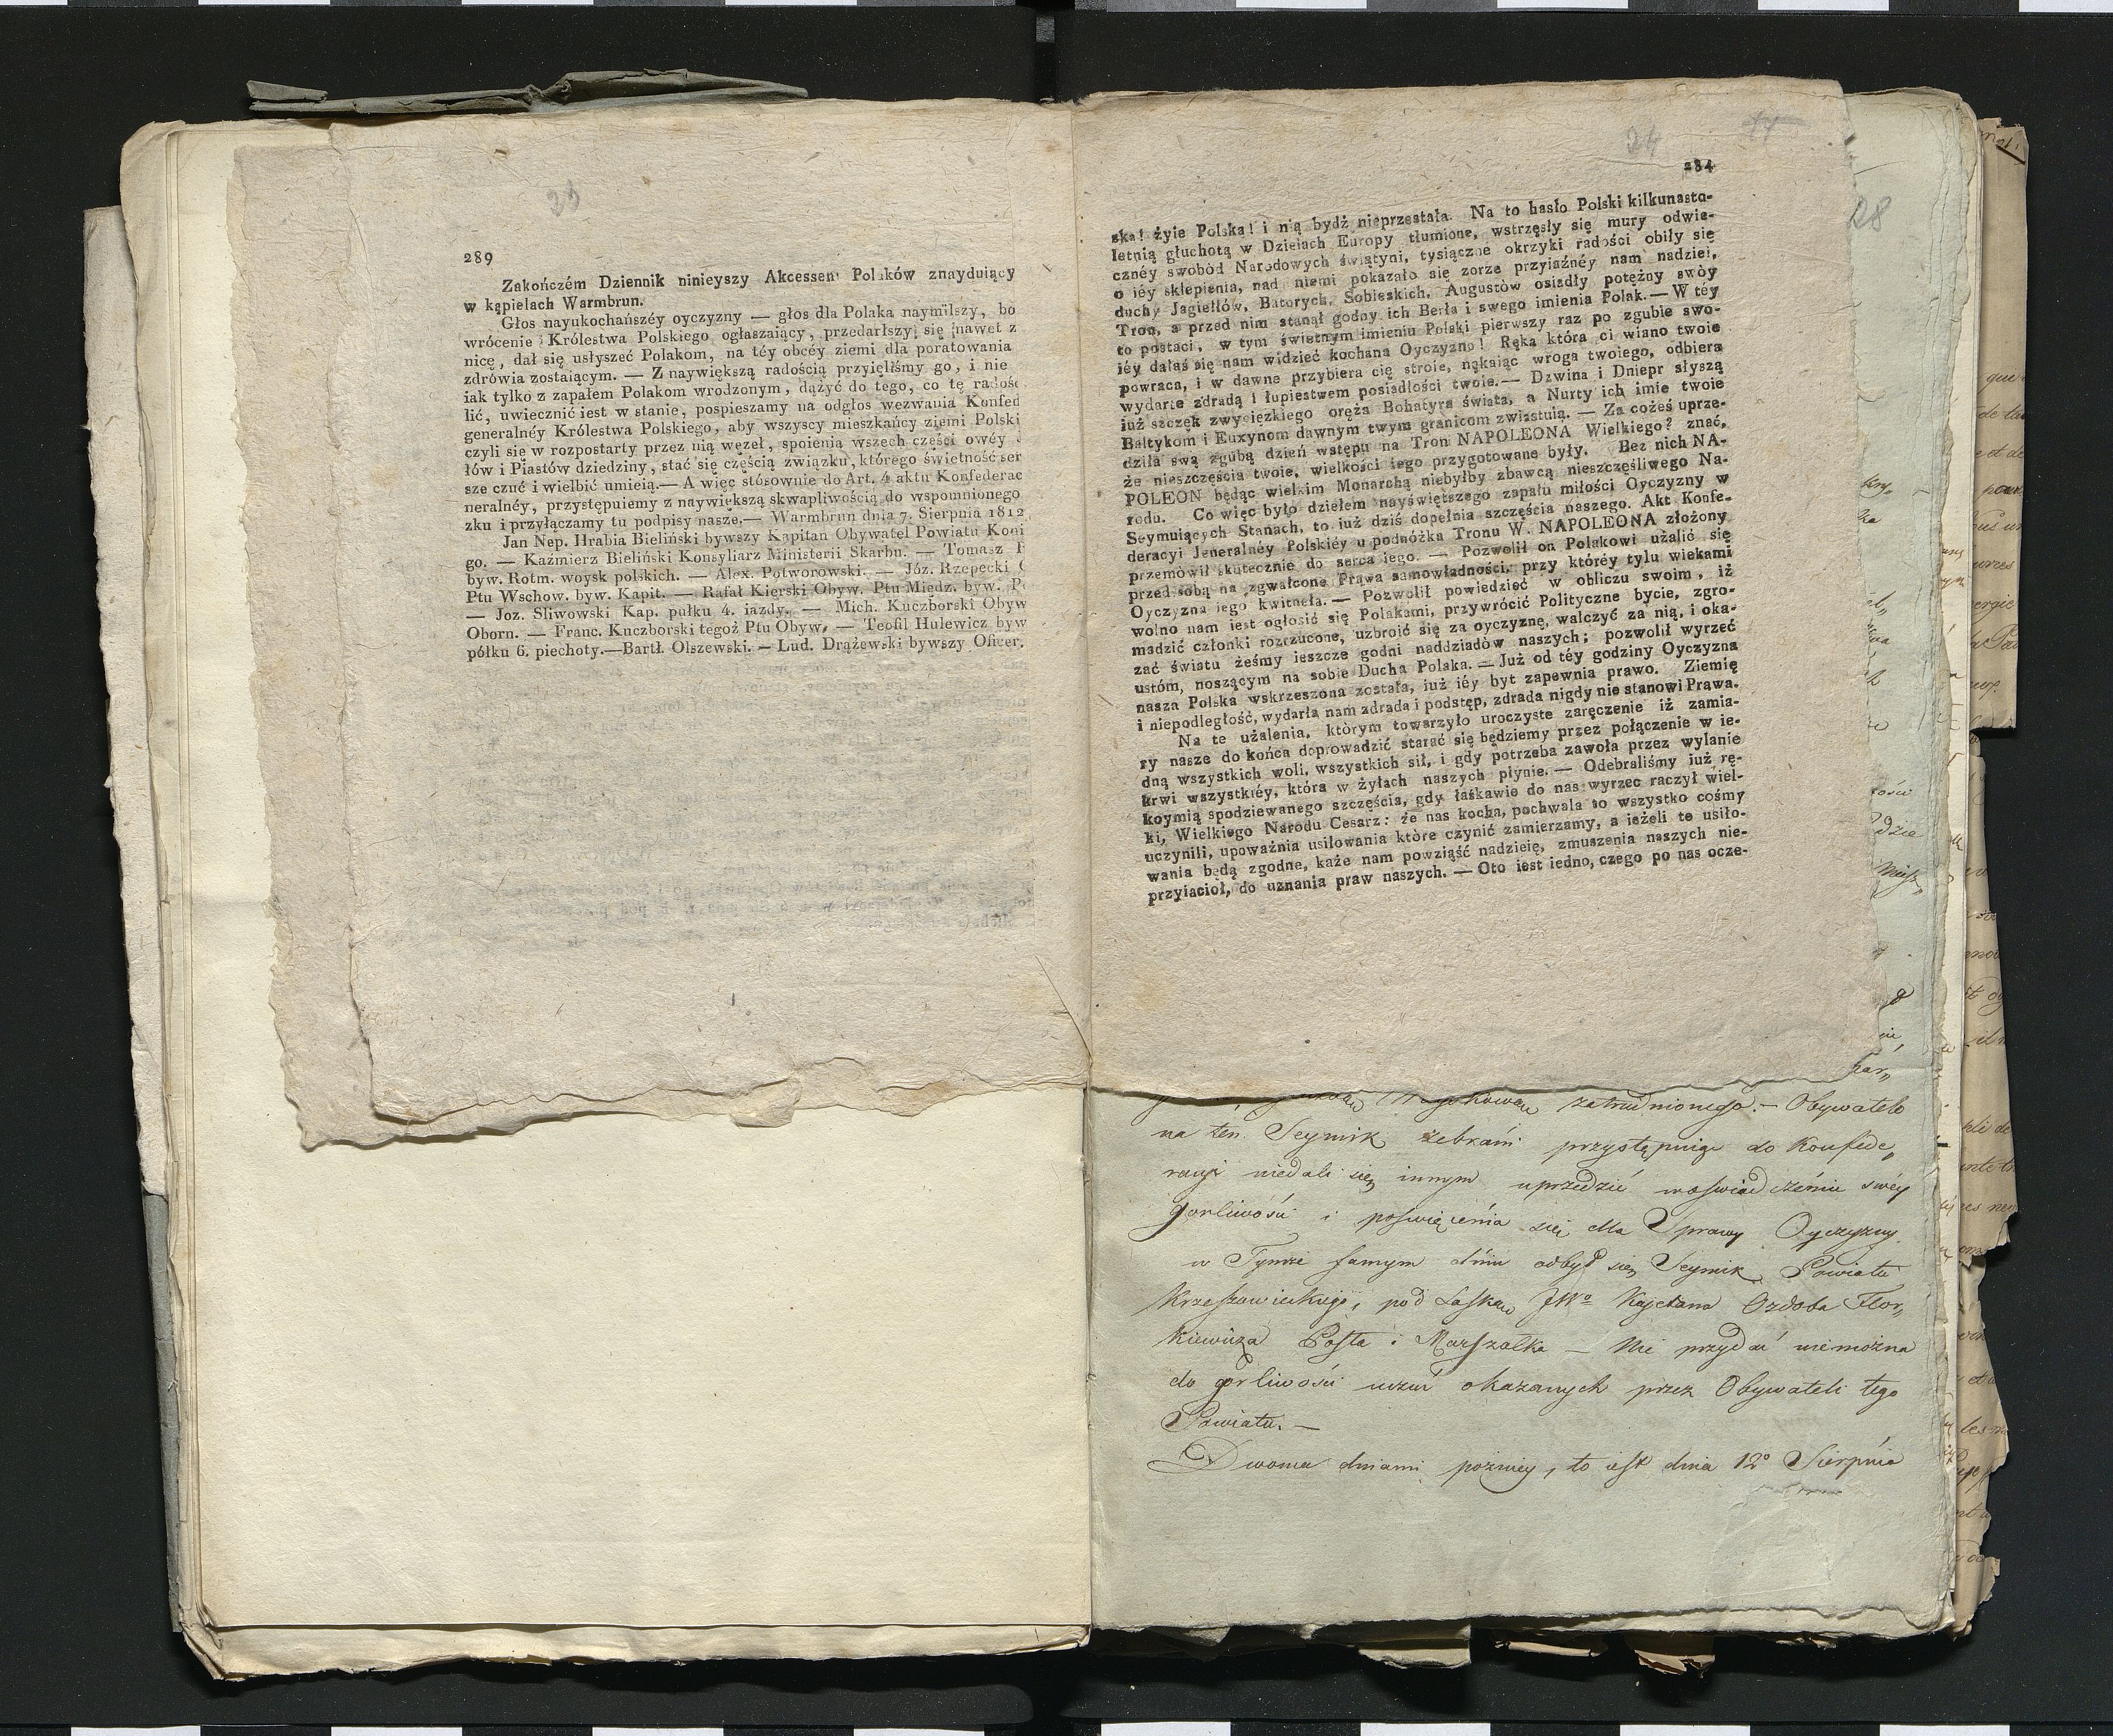 289
Zakończém Dziennik ninieyszy Akcessem Polaków znayduiący
w kąpielach Warmbrun.
Głos nayukochańszéy oyczyzny — głos dla Polaka naymilszy, bo
wrócenie Królestwa Polskiego ogłaszaiący, przedarłszy się nawet z
nicę, dał się usłyszeć Polakom, na téy obcéy ziemi dla poratowania
zdrówia zostaiącym. — Z naywiększą radością przyięliśmy go, i nie
iak tylko z zapałem Polakom wrodzonym, dążyć do tego, co tę radość
lić, uwiecznić iest w stanie, pospieszamy na odgłos wezwania Konfed
generalnéy Królestwa Polskiego, aby wszyscy mieszkańcy ziemi Polski
czyli się w rozpostarty przez nią węzeł, spoienia wszech części owéy
łów i Piastów dziedziny, stać się częścią związku, którego świetność ser
sze czuć i wielbić umieią.— A więc stósownie do Art. 4 aktu Konfederac
neralnéy, przystępuiemy z naywiększą skwapliwością do wspomnionego
zku i przyłączamy tu podpisy nasze.— Warmbrun dnia 7. Sierpnia 1812
Jan Nep. Hrabia Bieliński bywszy Kapitan Obywatel Powiatu Koni
go. — Kazimierz Bieliński Konsyliarz Ministerii Skarbu. — Tomasz
byw. Rotm. woysk polskich. — Alex. Potworowski. — Józ. Rzepęcki
Ptu Wschow. byw. Kapit. — Rafał Kierski Obyw. Ptu Międz. byw.
— Joz. Sliwowski Kap. pułku 4. iazdy. — Mich. Kuczborski Obyw
Oborn. — Franc. Kuczborski tegoż Ptu Obyw. — Teofil Hulewicz byw
półku 6. piechoty.—Bartł. Olszewski. — Lud. Drążewski bywszy Oficer.
24
284
28
ska! żyie Polska! i nią bydź nieprzestała. Na to hasło Polski kilkunasto-
letnią głuchotą w Dzieiach Europy tłumione, wstrzęsły się mury odwie-
cznéy swobód Narodowych świątyni, tysiączne okrzyki radości obiły się
o iéy sklepienia, nad niemi pokazało się zorze przyiaźnéy nam nadziei,
duchy Jagiełłów, Batorych, Sobieskich, Augustów osiadły potężny swóy
Tron, a przed nim stanął godny ich Berła i swego imienia Polak.— W téy
to postaci, w tym świetnym imieniu Polski pierwszy raz po zgubie swo-
iéy dałaś się nam widzieć kochana Oyczyzno! Ręka która ci wiano twoie
powraca, i w dawne przybiera cię stroie, nękaiąc wroga twoiego, odbiera
wydarte zdradą i łupiestwem posiadłości twoie.— Dzwina i Dniepr słyszą
iuż szczęk zwycięzkiego oręża Bohatyra świata, a Nurty ich imie twoie
Baltykom i Euxynom dawnym twym granicom zwiastuią. — Za cożeś uprze-
dziła swą zgubą dzień wstępu na Tron NAPOLEONA Wielkiego? znać,
że nieszczęścia twoie, wielkości iego przygotowane były. Bez nich NA-
POLEON będąc wielkim Monarchą niebyłby zbawcą nieszczęśliwego Na-
rodu. Co więc było dziełem nayświętszego zapału miłości Oyczyzny w
Seymuiących Stanach, to iuż dziś dopełnia szczęścia naszego. Akt Konfe-
deracyi Jeneralnéy Polskiéy u podnóżka Tronu W. NAPOLEONA złożony
przemówił skutecznie do serca iego. — Pozwolił on Polakowi użalić się
przed sobą na zgwałcone Prawa samowładności, przy któréy tylu wiekami
Oyczyzna iego kwitnęła. — Pozwolił powiedzieć w obliczu swoim, iż
wolno nam iest ogłosić się Polakami, przywrócić Polityczne bycie, zgro-
madzić członki rozrzucone, uzbroić się za oyczyznę, walczyć za nią, i oka-
zać światu żeśmy ieszcze godni naddziadów naszych; pozwolił wyrzec
ustóm, noszącym na sobie Ducha Polaka. — Już od téy godziny Oyczyzna
nasza Polska wskrzeszona została, iuż iéy byt zapewnia prawo. Ziemię
i niepodległość, wydarła nam zdrada i podstęp, zdrada nigdy nie stanowi Prawa.
Na te użalenia, którym towarzyło uroczyste zaręczenie iż zamia-
ry nasze do końca doprowadzić starać się będziemy przez połączenie w ie-
dną wszystkich woli, wszystkich sił, i gdy potrzeba zawoła przez wylanie
krwi wszystkiéy, która w żyłach naszych płynie. — Odebraliśmy iuż rę-
koymią spodziewanego szczęścia, gdy łaskawie do nas wyrzec raczył wiel-
ki, Wielkiego Narodu Cesarz: że nas kocha, pochwala to wszystko cośmy
uczynili, upoważnia usiłowania które czynić zamierzamy, a ieżeli te usiło-
wania będą zgodne, każe nam powziąść nadzieię, zmuszenia naszych nie-
przyiacioł, do uznania praw naszych. — Oto iest iedno, czego po nas ocze-
zatrudnionego. — Obywatele
na ten Seymik zebrani przystępuiąc do Konfede„
racyi niedali się innym uprzedzić w oświadczéniu swéy
gorliwości i poświęcénia się dla Sprawy Oyczyzny.
w Tymże samym dniu odbył się Seymik Powiatu
Krzeszowickiego, pod Laską JWo Kajetana Ozdoba Flor„
kiewicza Posła i Marszałka — Nic przydać niemożna
do gorliwości uczuć okazanych przez Obywateli tego
Powiatu. —
Dwoma dniami poźniey, to iest dnia 12o Sierpnia